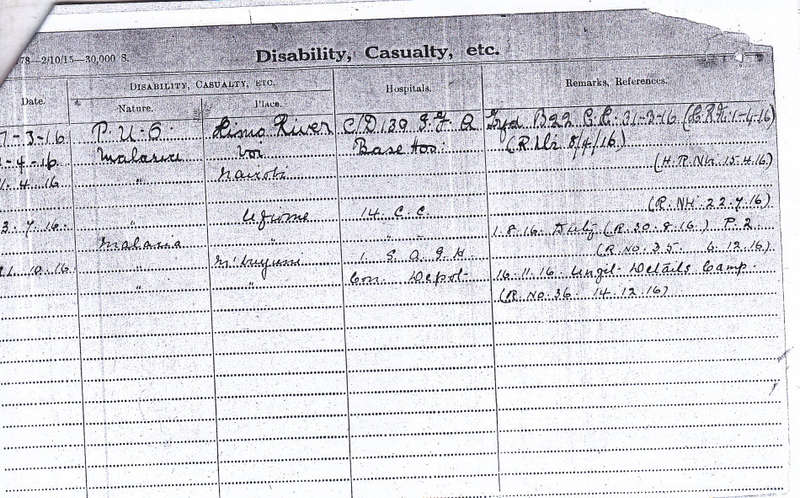 78—2/10/15—30,000 S.
Disability, Casualty, etc.
Date. Disability, Casualty, etc. Hospitals. Remarks, References.
Nature. Place.
7-3-16 P.U.O. Himo River C/D 139 B22 31-3-16 1-4-16)
-4-16 Malaria Voi Base Hos: 8/4/16)
1.4.16 " Nairobi (H.R.Nbi 15.4.16)
(R. NH. 22.7.16)
3.7.16. " Ufiome 14 C.C. 1.8.16. (R.30.8.16.) P.2
Malaria " " " (R.No.35. 6.12.16)
10.16. " 1 S.A.G.H. 16.11.16. Details Camp.
" " Con. Depot (R.No.36 14.12.16)